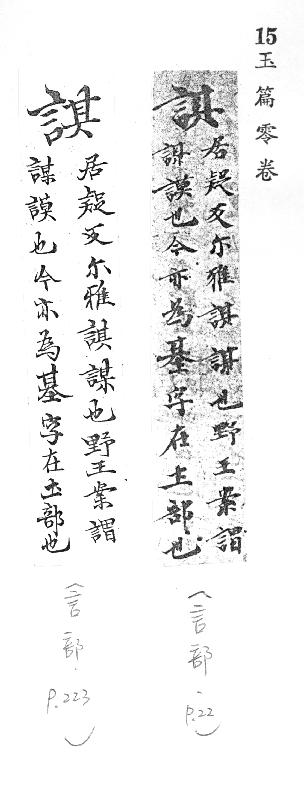 15玉篇零卷
諆
居疑反尓雅諆謀也野王案謂
謀謨也今亦為基字在土部也
(言部.P.22)
諆
居疑反尓雅諆謀也野王案謂
謀謨也今亦為基字在土部也
(言部.P.223)